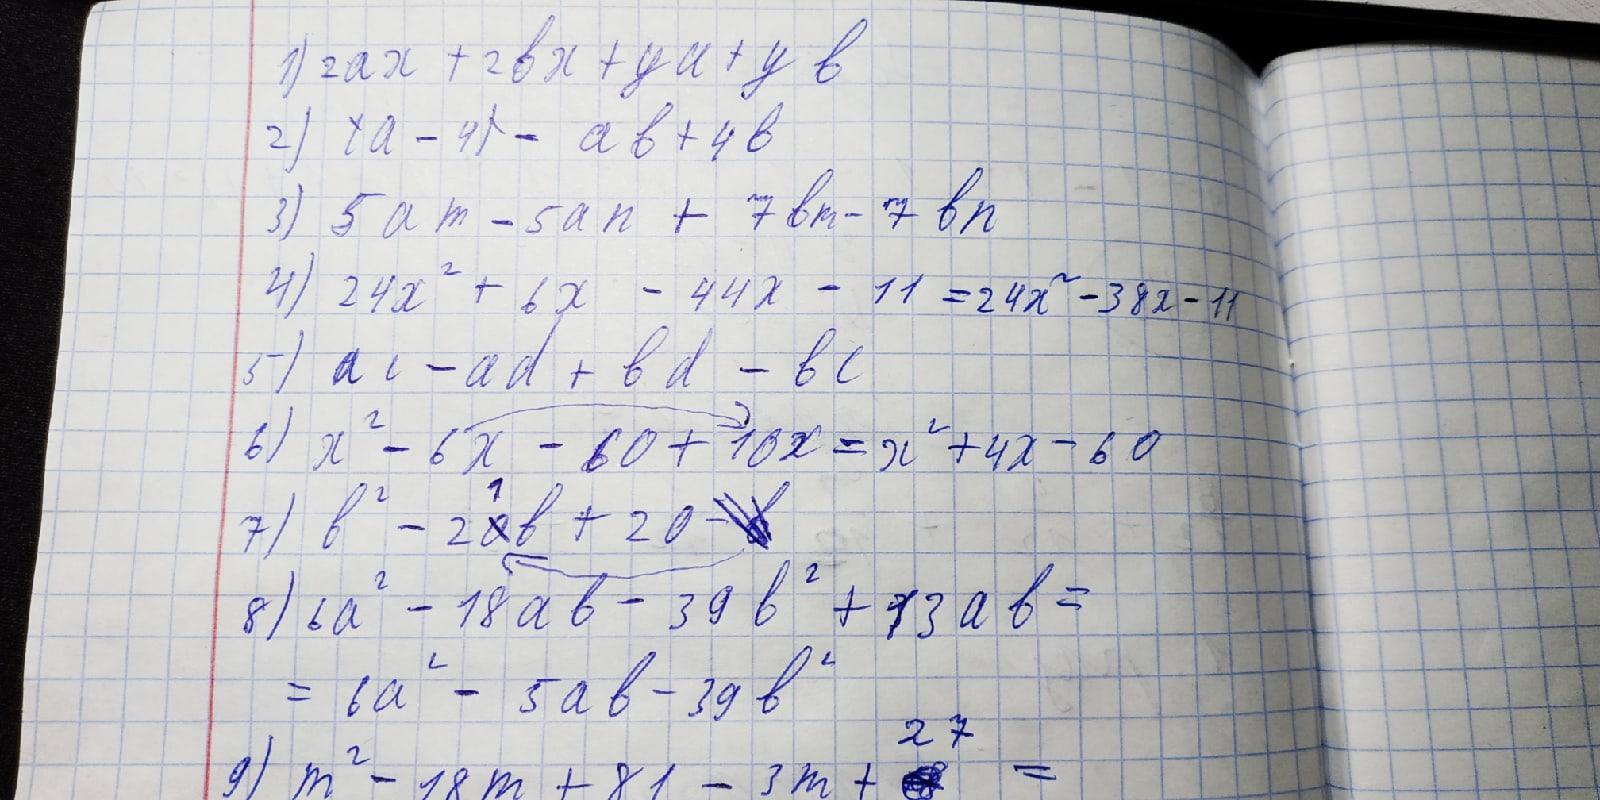 1) 2ax + 2bx + ya + yb
2) (a - 4) - ab + 4b
3) 5am - 5an + 7bm - 7bn
4) 24x² + 6x - 44x - 11 = 24x² - 38x - 11
5) ac - ad + bd - bc
6) x² - 6x - 60 + 10x = x² + 4x - 60
7) b² - 21b + 20
8) 6a² - 18ab - 39b² + 13ab =
= 6a² - 5ab - 39b²
9) m² - 18m + 81 - 3m + 27 =